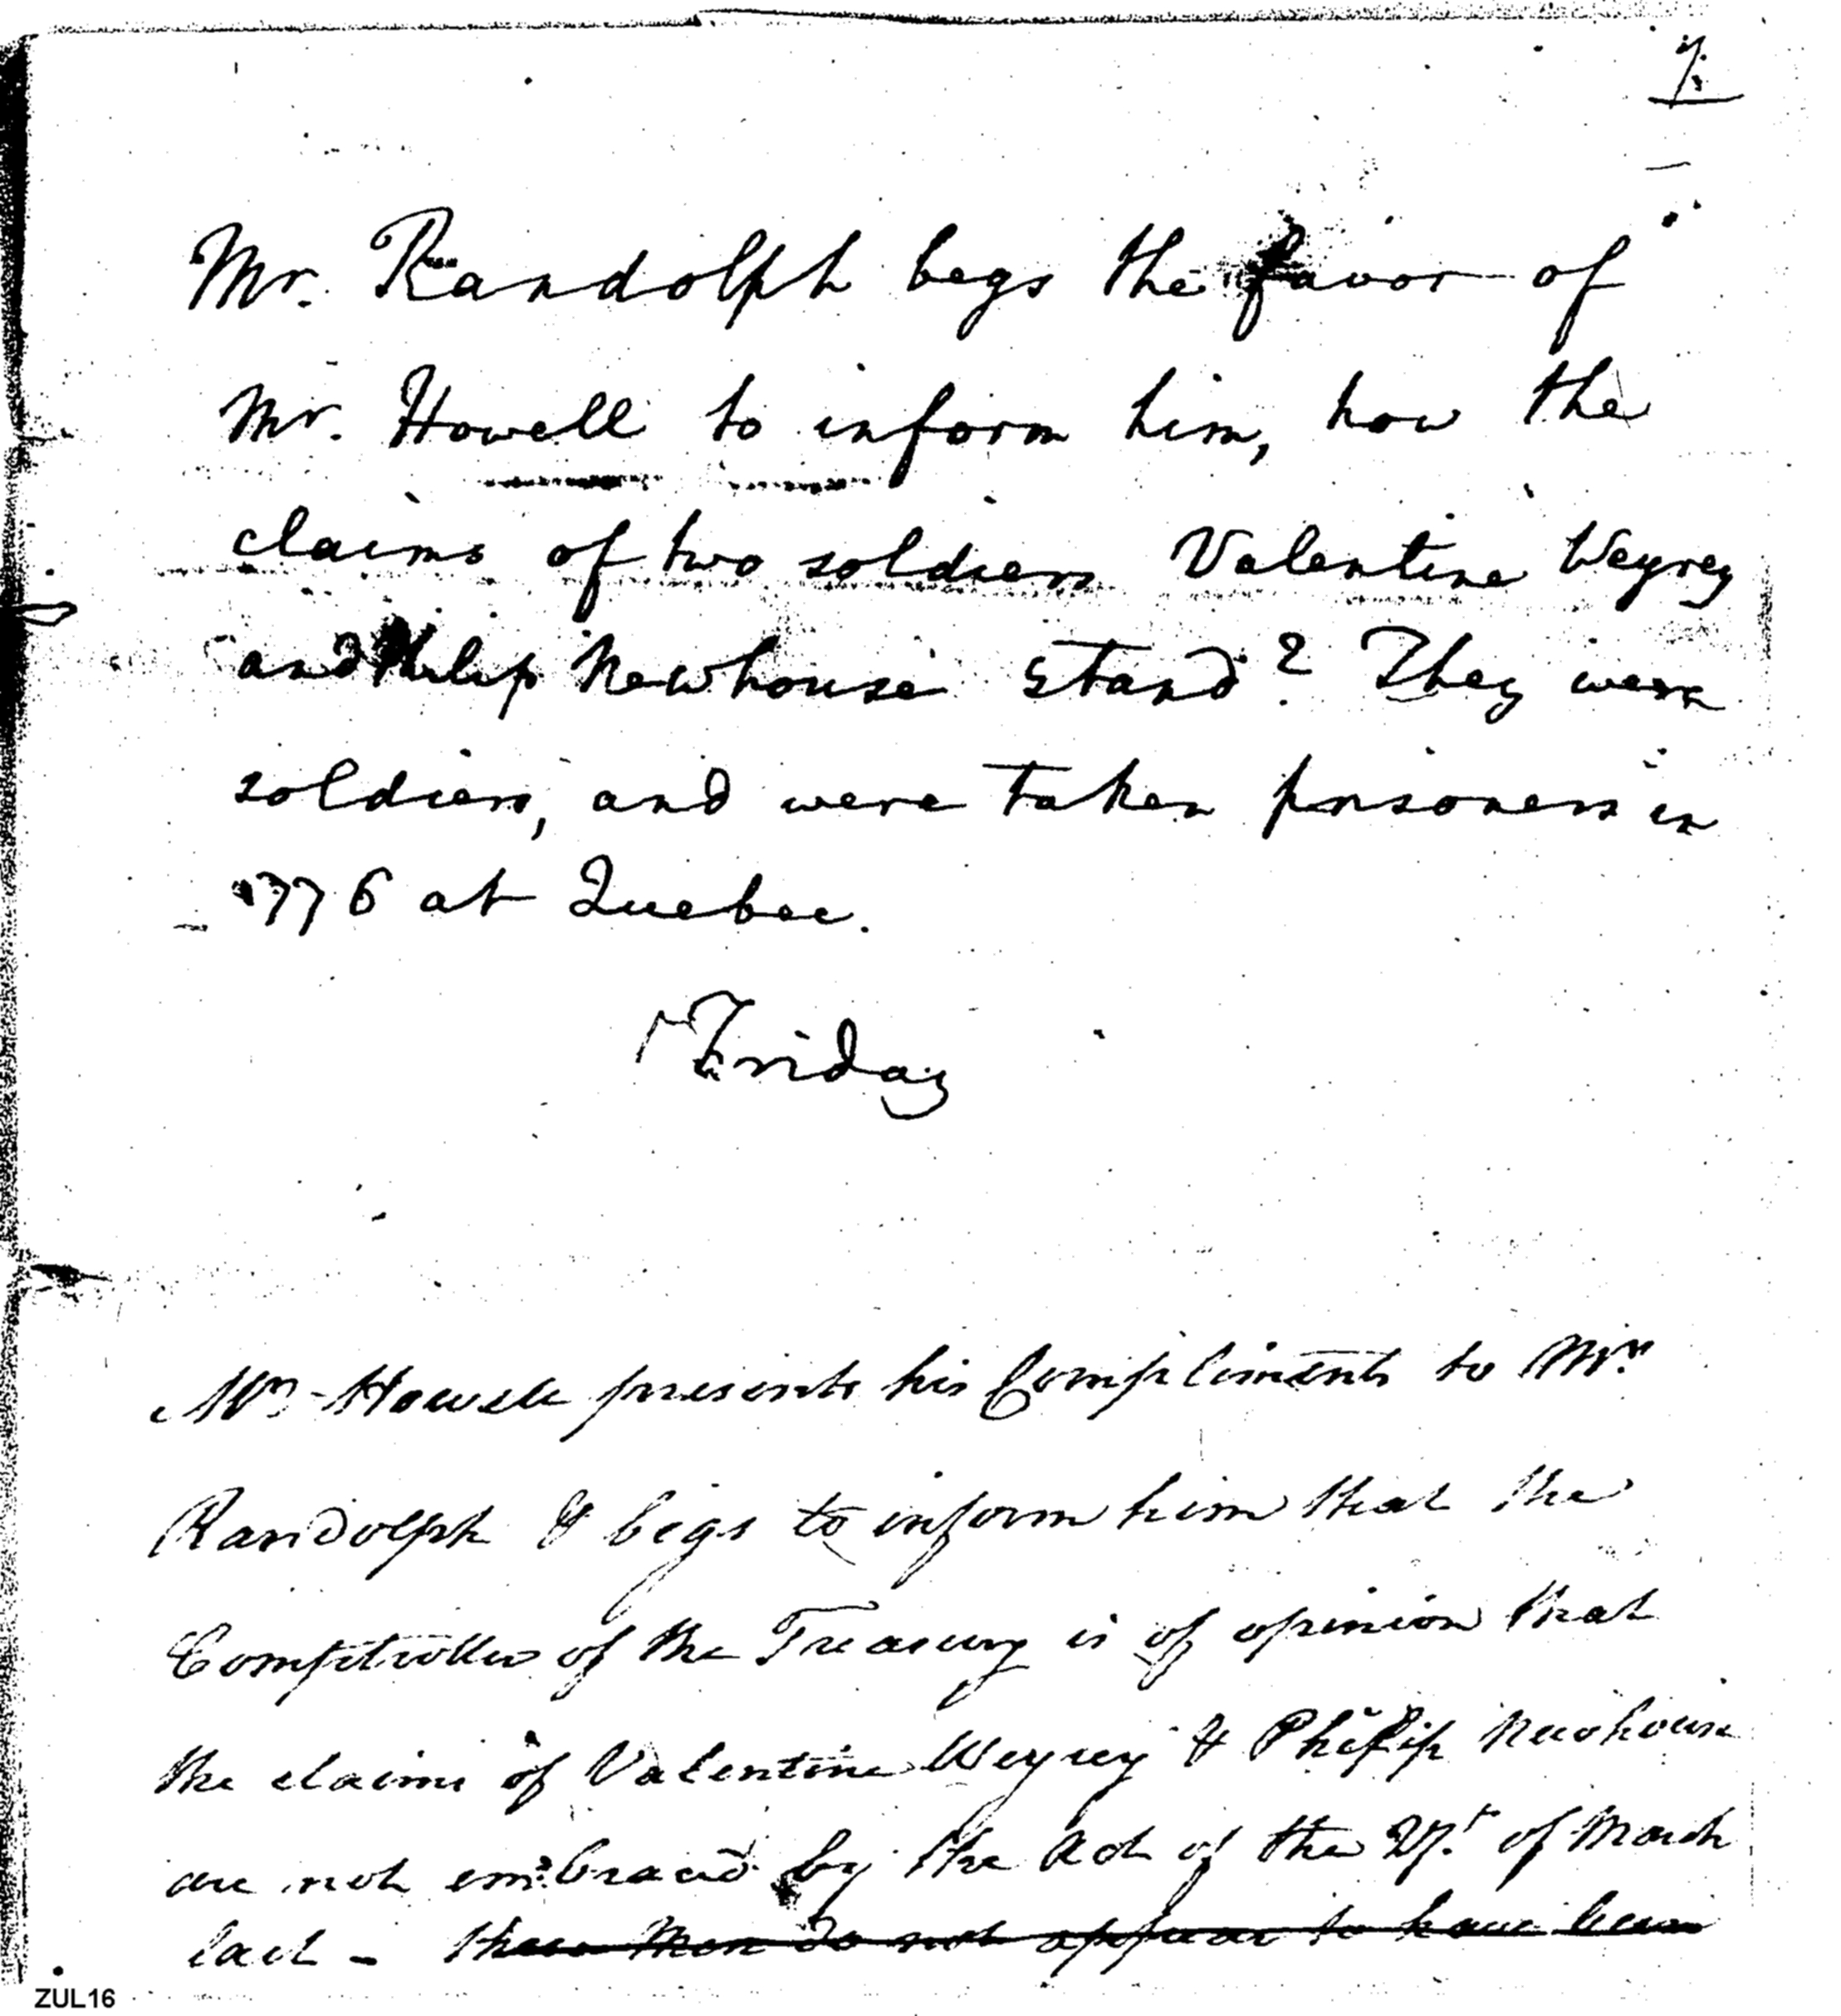 Mr. Randolph begs the favor of
Mr. Howell to inform him, how the
claims of two soldiers Valentine Weyrey
and Philip Newhouse stand? They were
soldiers, and were taken prisoners in
1776 at Quebec.
Friday
Mr. Howell presents his Compliments to Mr.
Randolph & begs to inform him that the
Comptroller of the Treasury is of opinion that
the claims of Valentine Weyrey & Philip Newhouse
are not embraced by the Act of the of March
last - these Men do not appear to have been
ZUL16